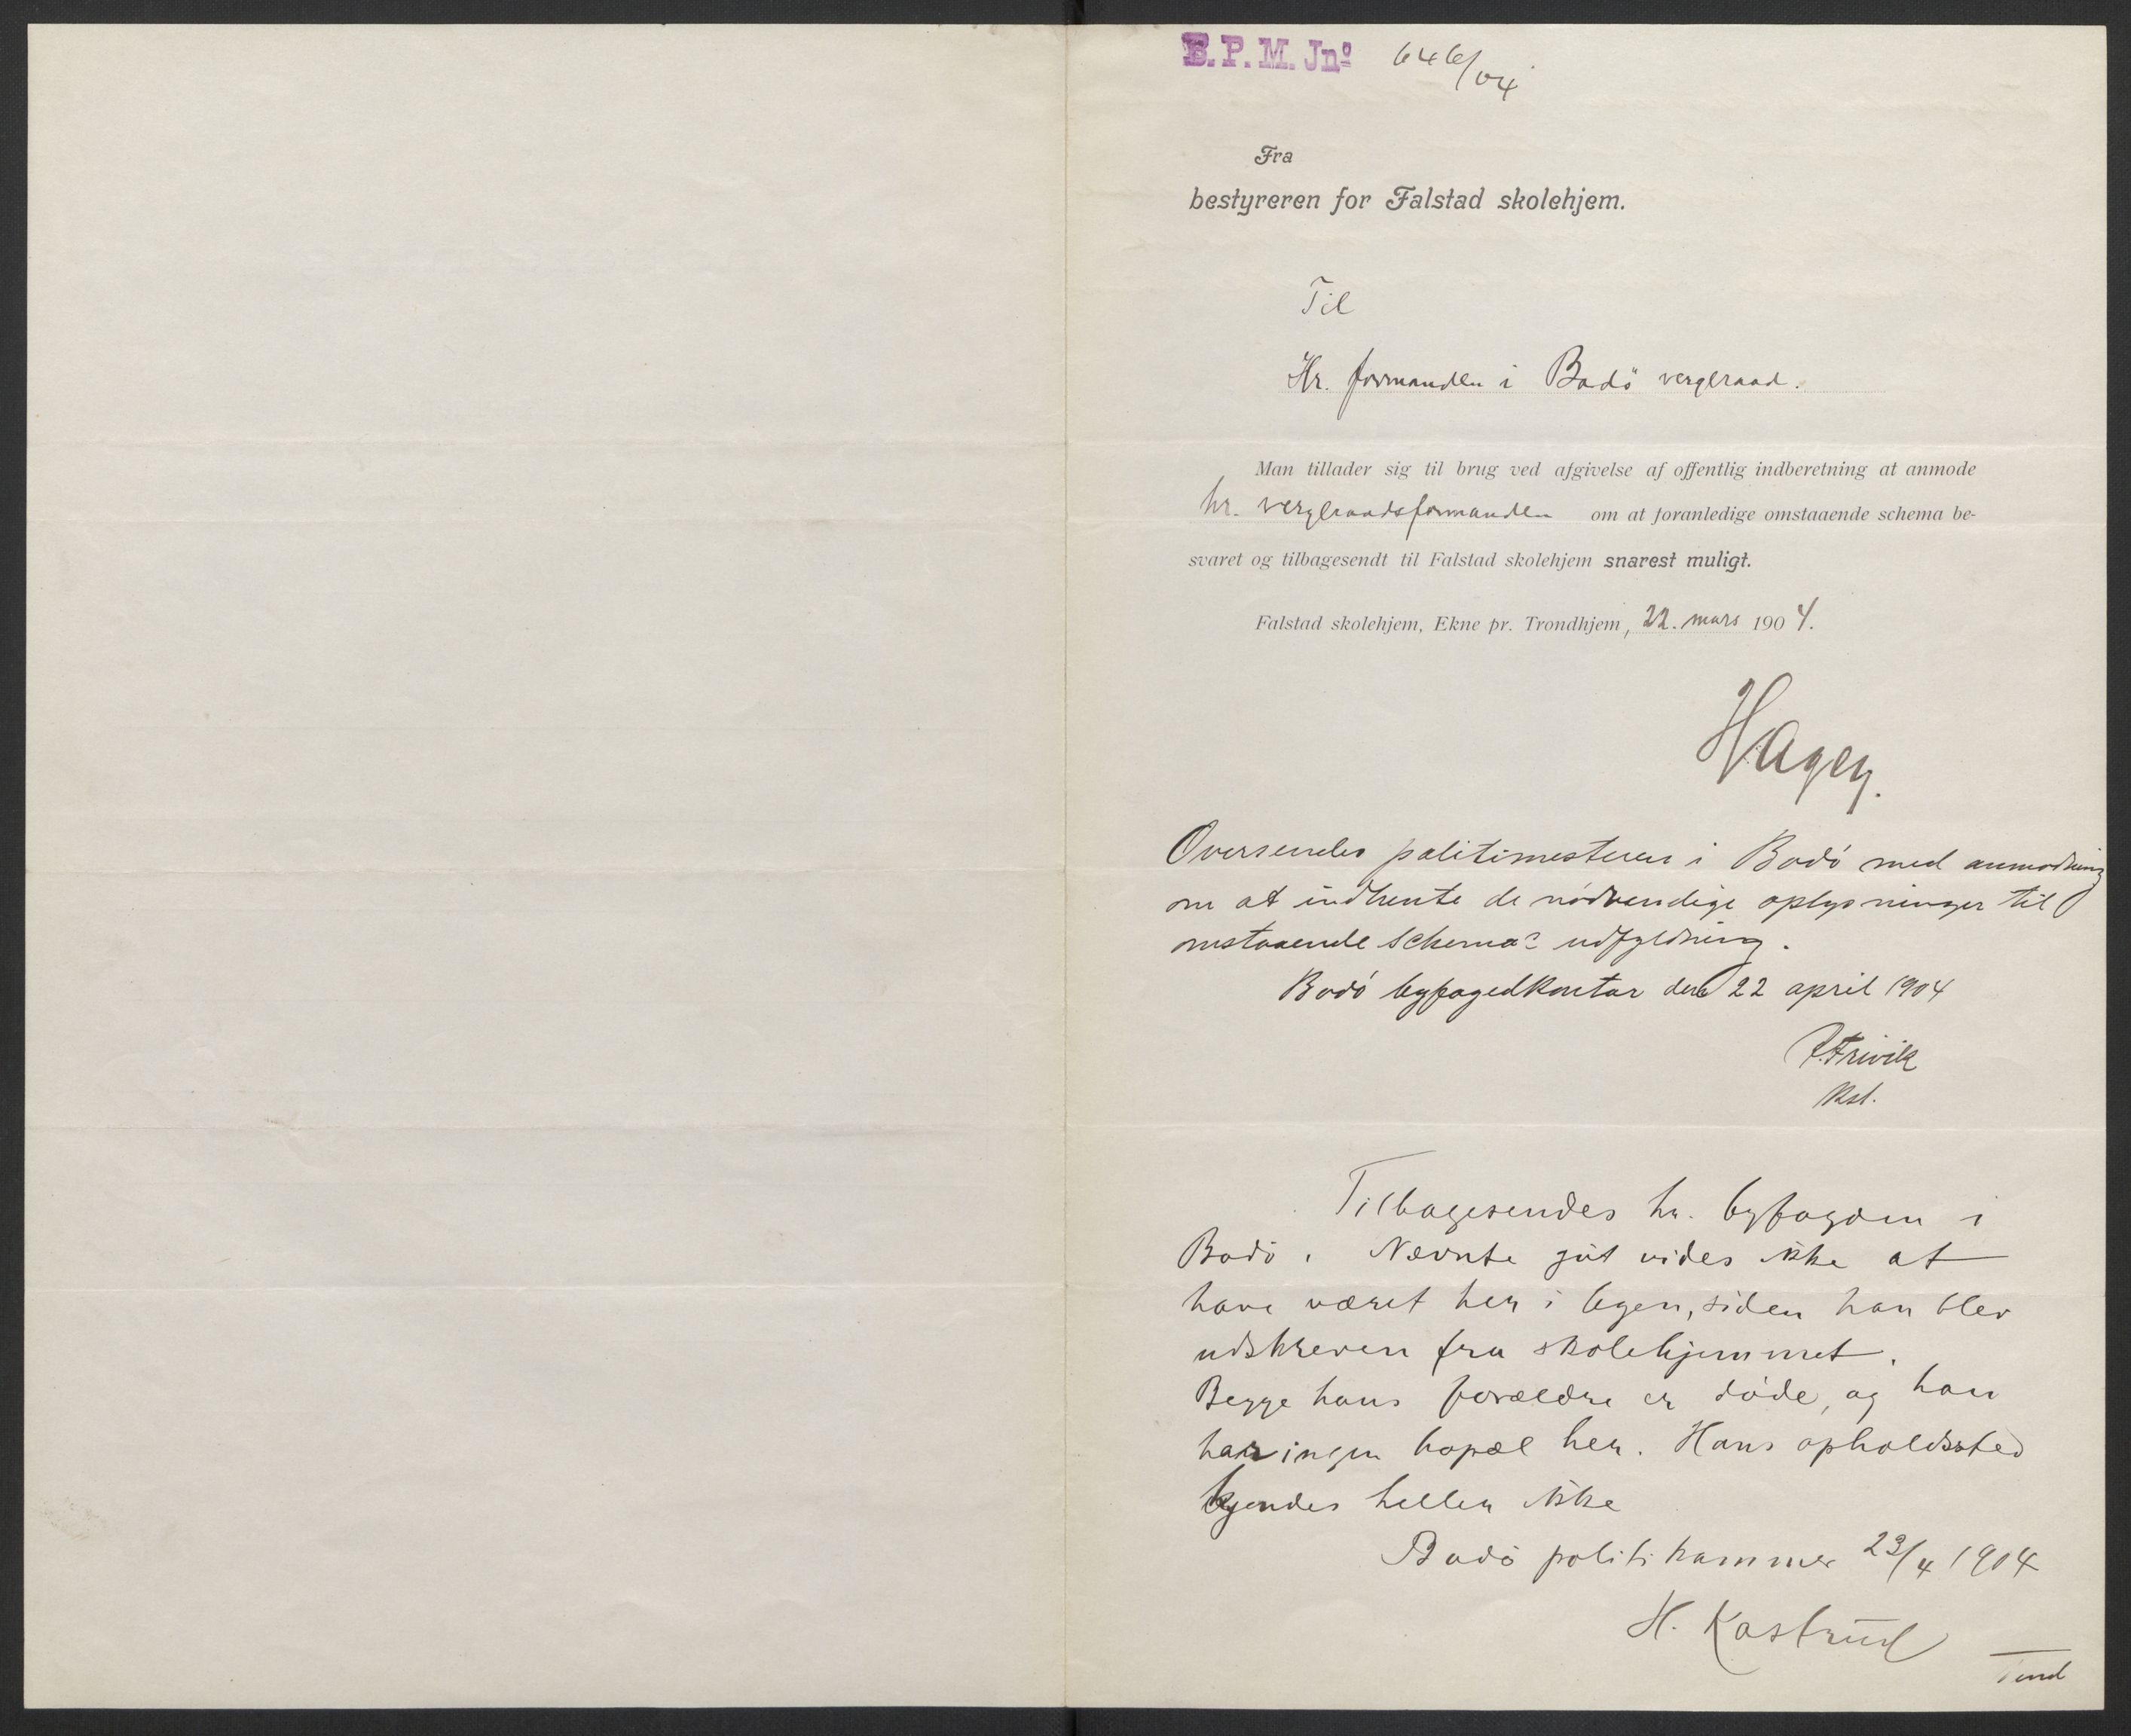 B.P.M. Jnº 646/04
Fra
bestyreren for Falstad skolehjem.
Til
Hr. formanden i Bodö vergeraad.
Man tillader sig til brug ved afgivelse af offentlig indberetning at anmode
hr. vergeraadsformanden om at foranledige omstaaende schema be-
svaret og tilbagesendt til Falstad skolehjem snarest muligt.
Falstad skolehjem, Ekne pr. Trondhjem, 22. mars 1904.
Hagen.
Oversendes politimesteren i Bodö med anmodning
om at indhente de nödvendige oplysninger til
omstaaende schemas udfyldning.
Bodö byfogedkontor den 22 april 1904
Kst.
Tilbagesendes hr. byfogden i
Bodö. Nævnte gut vides ikke at
have været her i byen, siden han blev
udskreven fra skolehjemmet.
Begge hans forældre er döde, og han
har ingen bopæl her. Hans opholdssted
kjendes heller ikke
Bodö politikammer 23/4 1904
H. Kastrud